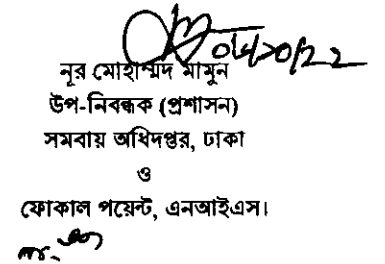 নূর মোহাম্মদ মামুন
উপ-নিবন্ধক (প্রশাসন)
সমবায় অধিদপ্তর, ঢাকা
ও
ফোকাল পয়েন্ট, এনআইএস।